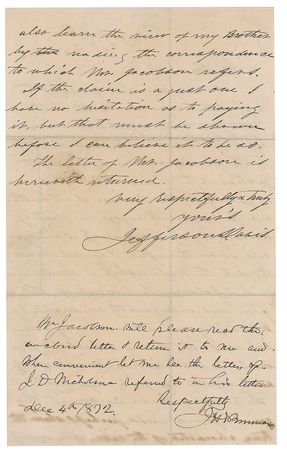 also learn the view of my Brother
by reading the correspondence
to which Mr. Jacobson refers.
If the claim is a just one I
have no hesitation as to paying
it, but that must be shown
before I can believe it to be so.
The letter of Mr. Jacobson is
herewith returned.
Very respectfully & truly
yours
Jefferson Davis
Mr Jacobson will please read the
enclosed letter & return it to me and
when convenient let me see the letter of
J. D. Nicholson referred to in his letter
Respectfully
Dec 4th 1872.